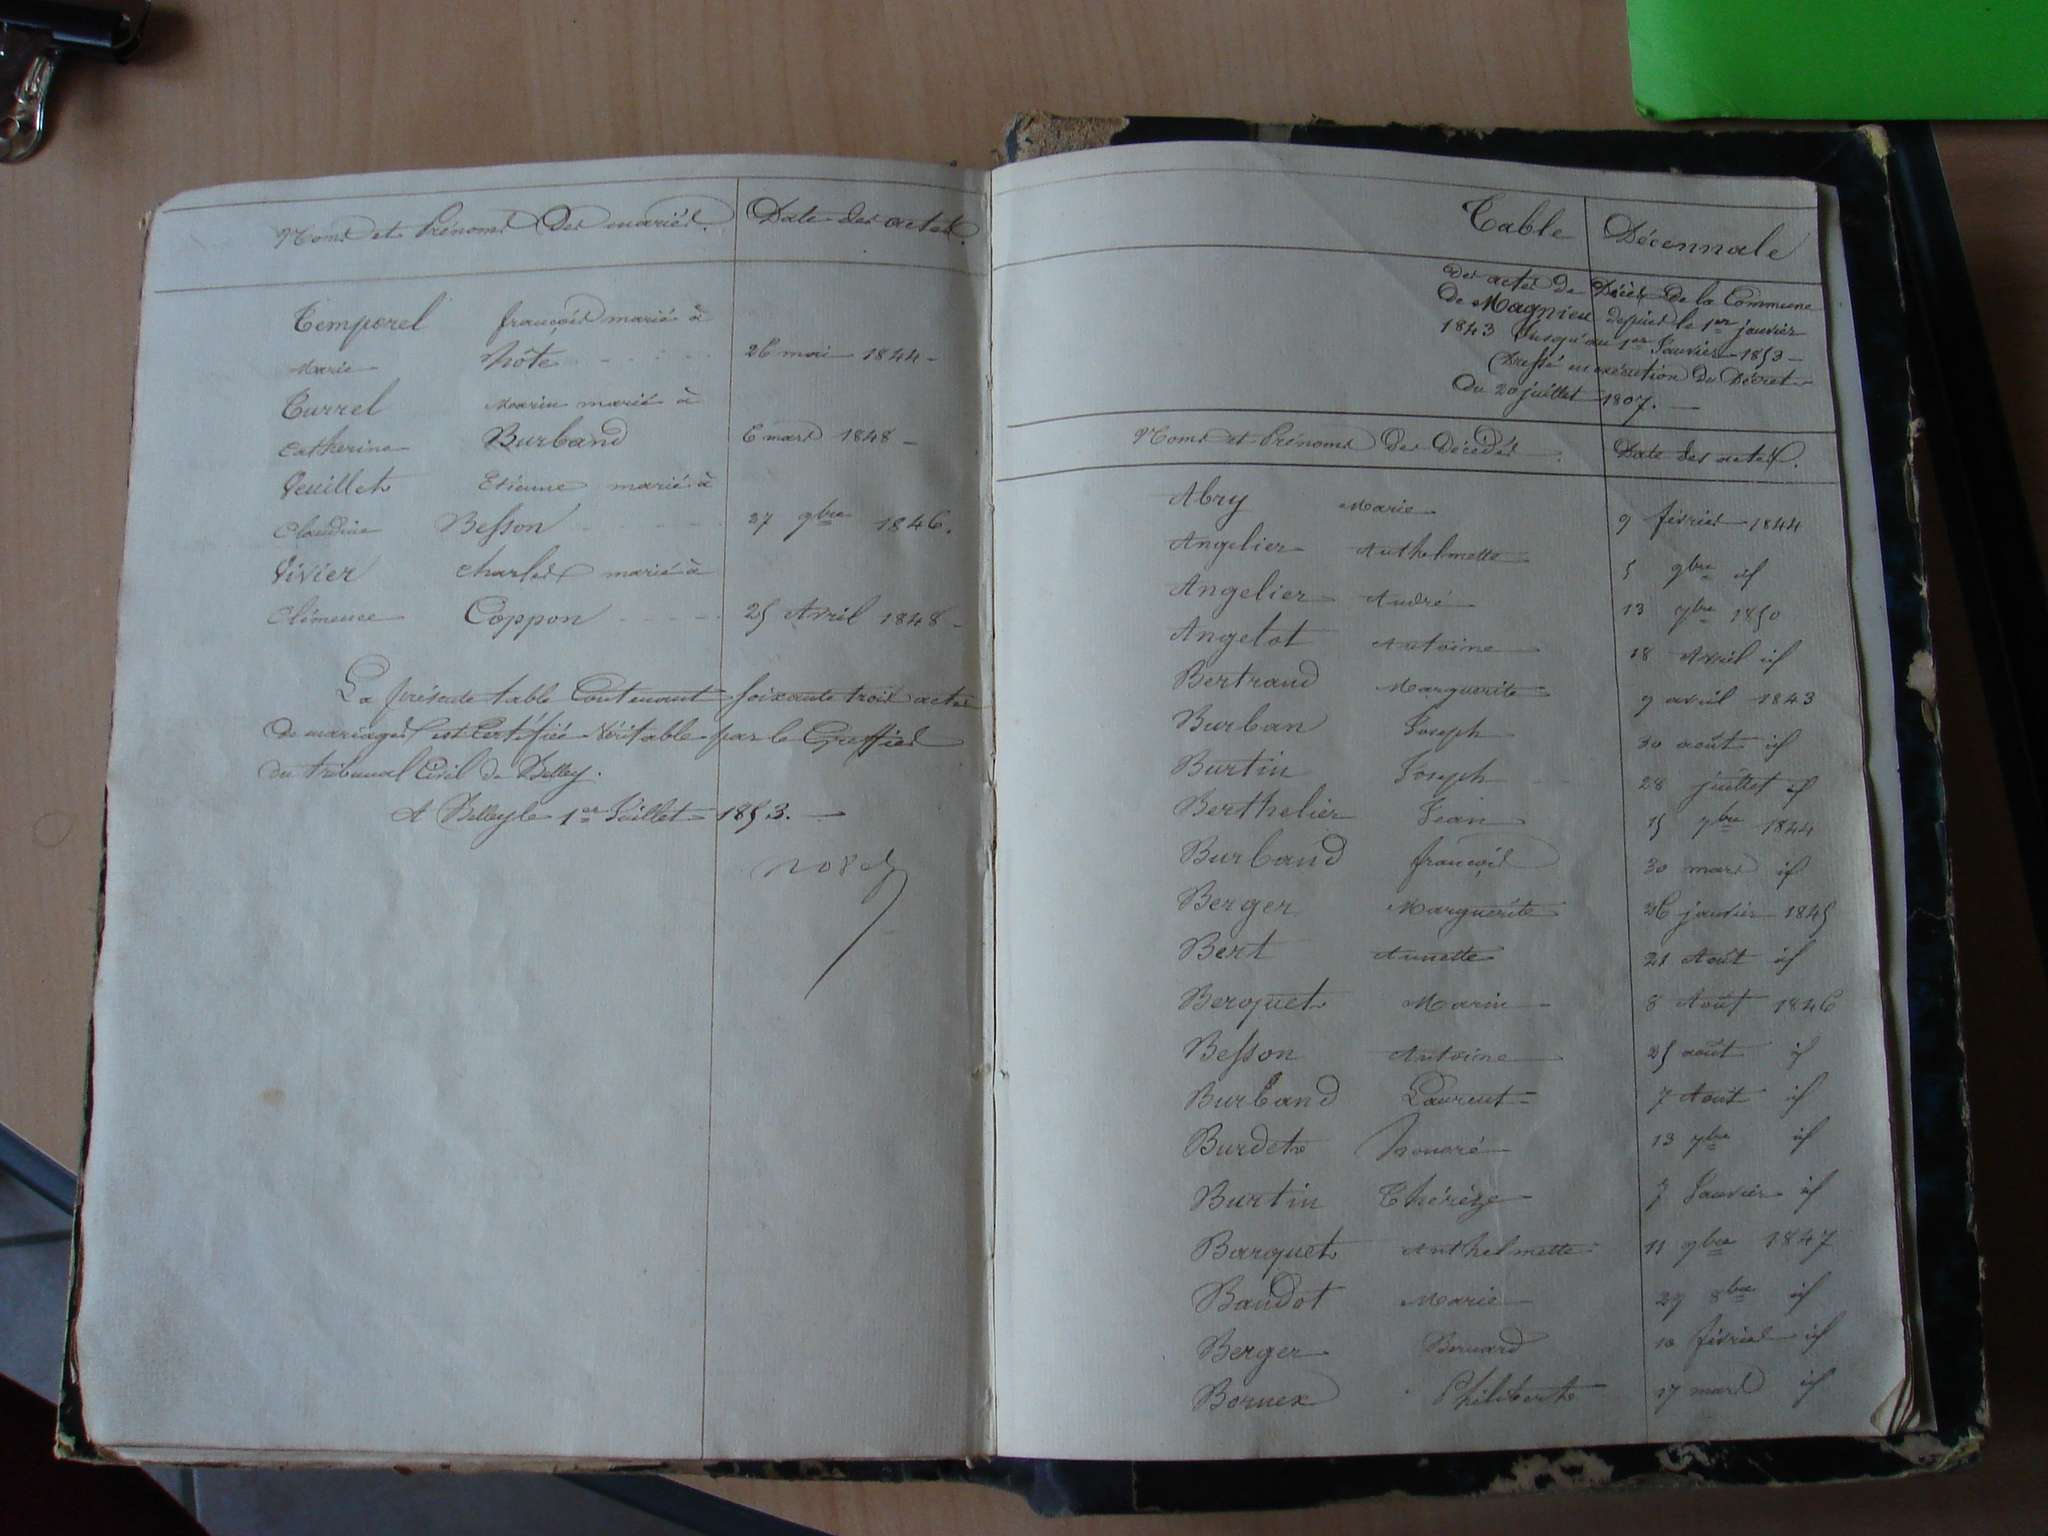 Noms et Prénoms Des mariés. Date des actes.
Temporel françois marié à
Marie hôte 26 mai 1844
Turrel Marin marié à
Catherine Burband 6 mars 1848
Veuillet Etienne marié à
Claudine Besson 27 9bre 1846.
Vivier Charles marié à
Clémence Coppon 25 Avril 1848
La présente table Contenant soixante trois actes
de mariages est Certifiée Véritable par le Greffier
du tribunal Civil de Belley.
A Belley le 1er Juillet 1853.
Table Décennale
Des actes de Décès de la Commune
de Magnieu depuis le 1er janvier
1843 Jusqu'au 1er Janvier 1853
Dressé en exécution du Décret
du 20 juillet 1807.
Noms et Prénoms Des Décédés Date des actes.
Abry Marie 9 février 1844
Angelier Anthelmette 5 9bre id
Angelier André 13 7bre 1850
Angelot Antoine 18 Avril id
Bertrand Marguerite 9 avril 1843
Burban Joseph 30 août id
Burtin Joseph 28 juillet id
Berthelier Jean 15 7bre 1844
Burband françois 30 mars id
Berger Marguerite 26 janvier 1845
Bert Annette 21 Août id
Beroquet Marin 8 Août 1846
Besson Antoine 25 août id
Burband Laurent 7 Août id
Burdet honoré 13 7bre id
Burtin Thérèze 7 Janvier id
Barquet Anthelmette 11 9bre 1847
Baudot Marie 27 8bre id
Berger Bernard 10 février id
Bornex Philiberte 17 mars id